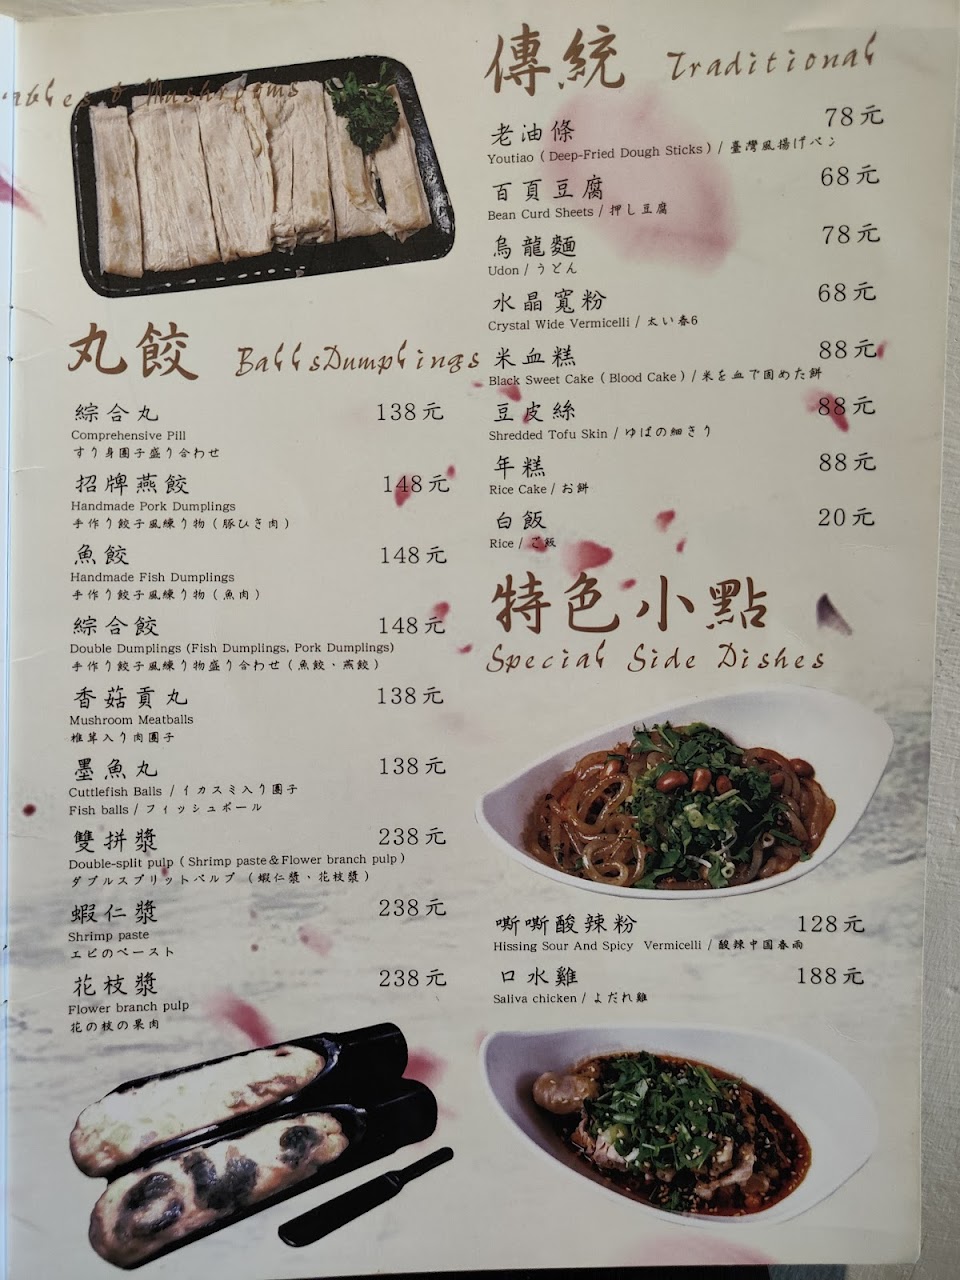 ables & Mushrooms
丸餃 BallsDumplings
綜合丸 138元
Comprehensive Pill
すり身團子盛り合わせ
招牌燕餃 148元
Handmade Pork Dumplings
手作り餃子風練り物(豚ひき肉)
魚餃 148元
Handmade Fish Dumplings
手作り餃子風練り物(魚肉)
綜合餃 148元
Double Dumplings (Fish Dumplings, Pork Dumplings)
手作り餃子風練り物盛り合わせ(魚餃、燕餃)
香菇貢丸 138元
Mushroom Meatballs
椎茸入り肉團子
墨魚丸 138元
Cuttlefish Balls / イカスミ入り團子
Fish balls / フィッシュボール
雙拼漿 238元
Double-split pulp ( Shrimp paste&Flower branch pulp )
ダブルスプリットパルプ (蝦仁漿、花枝漿)
蝦仁漿 238元
Shrimp paste
エビのペースト
花枝漿 238元
Flower branch pulp
花の枝の果肉
傳統 Traditional
老油條 78元
Youtiao ( Deep-Fried Dough Sticks ) / 臺灣風揚げパン
百頁豆腐 68元
Bean Curd Sheets / 押し豆腐
烏龍麵 78元
Udon / うどん
水晶寬粉 68元
Crystal Wide Vermicelli / 太い春6
米血糕 88元
Black Sweet Cake ( Blood Cake ) / 米を血で固めた餅
豆皮絲 88元
Shredded Tofu Skin / ゆばの細きり
年糕 88元
Rice Cake / お餅
白飯 20元
Rice / ご飯
特色小點
Special Side Dishes
嘶嘶酸辣粉 128元
Hissing Sour And Spicy Vermicelli / 酸辣中国春雨
口水雞 188元
Saliva chicken / よだれ雞